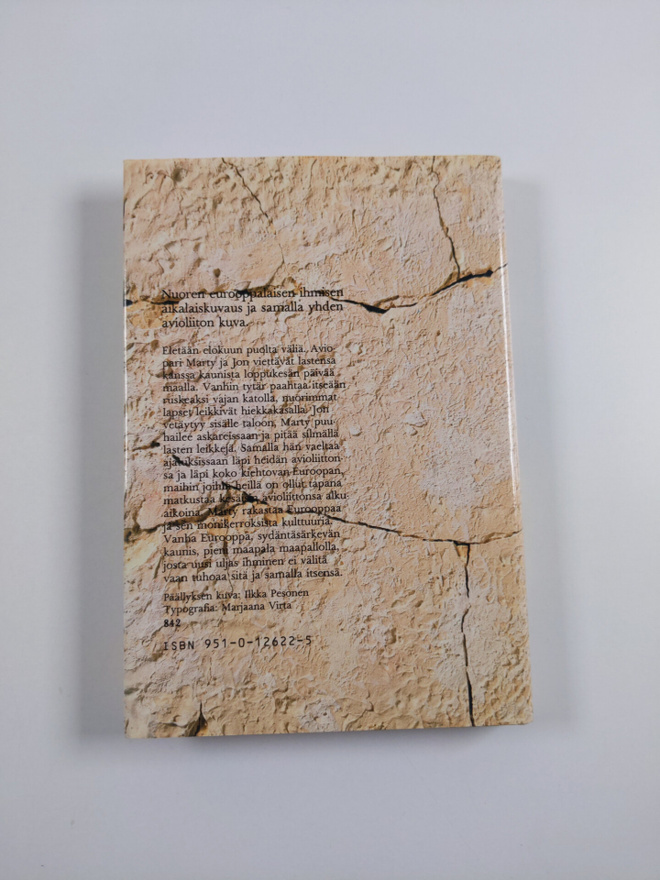 Nuoren eurooppalaisen ihmisen
aikalaiskuvaus ja samalla yhden
avioliiton kuva.
Eletään elokuun puolta väliä. Avio-
pari Marty ja Jon viettävät lastensa
kanssa kaunista loppukesän päivää
maalla. Vanhin tytär paahtaa itseään
ruskeaksi vajan katolla, nuorimmat
lapset leikkivät hiekkakasalla. Jon
vetäytyy sisälle taloon, Marty puu-
hailee askareissaan ja pitää silmällä
lasten leikkejä. Samalla hän vaeltaa
ajatuksissaan läpi heidän avioliitton-
sa ja läpi koko kiehtovan Euroopan,
maihin joihin heillä on ollut tapana
matkustaa kesäisin avioliittonsa alku
aikoina. Marty rakastaa Eurooppaa
ja sen monikerroksista kulttuuria.
Vanha Eurooppa, sydäntäsärkevän
kaunis, pieni maapala maapallolla,
josta uusi uljas ihminen ei välitä
vaan tuhoaa sitä ja samalla itsensä.
Päällyksen kuva: Ilkka Pesonen
Typografia: Marjaana Virta
842
ISBN 951-0-12622-5